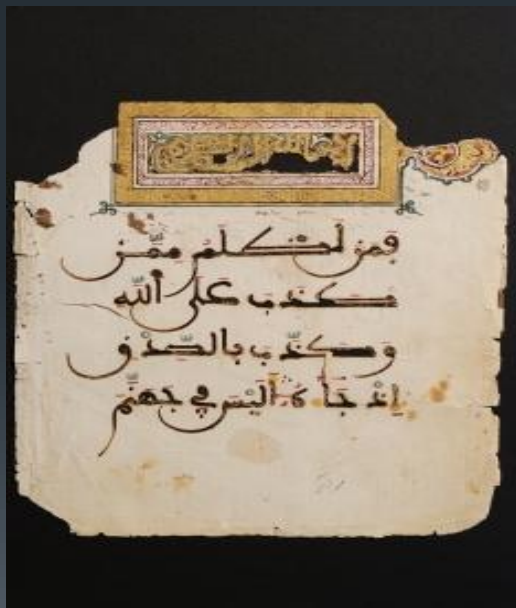 فَمَنَ اَظْلَمُ مِمَّن
كَذَبَ عَلَى اَللَّهِ
وَكَذَّبَ بِالصِّدْقِ
إِذْ جَآءَهُۥٓ أَلَيْسَ فِي جَهَنَّمَ